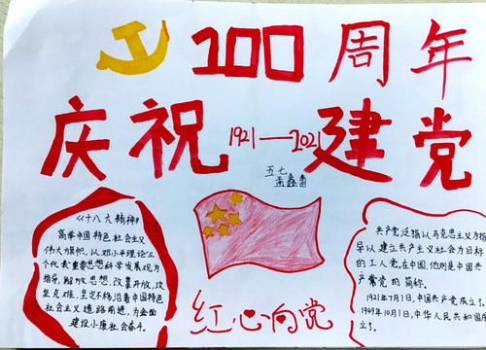 100周年
庆祝 1921—2021 建党
五七
《十八大精神》
高举中国特色社会主义
伟大旗帜，以邓小平理论三
个代表重要思想科学发展观为
指导，解放思想，改革开放，攻
坚克难，坚定不移沿着中国特色
社会主义道路前进，为全面
建设小康社会奋斗。
红心向党
共产党泛指以马克思主义为指
导以建立共产主义社会为目标
的工人党，在中国，他则是中国共
产党的简称。
1921年7月1日，中国共产党成立了。
1949年10月1日，中华人民共和国成
立了。